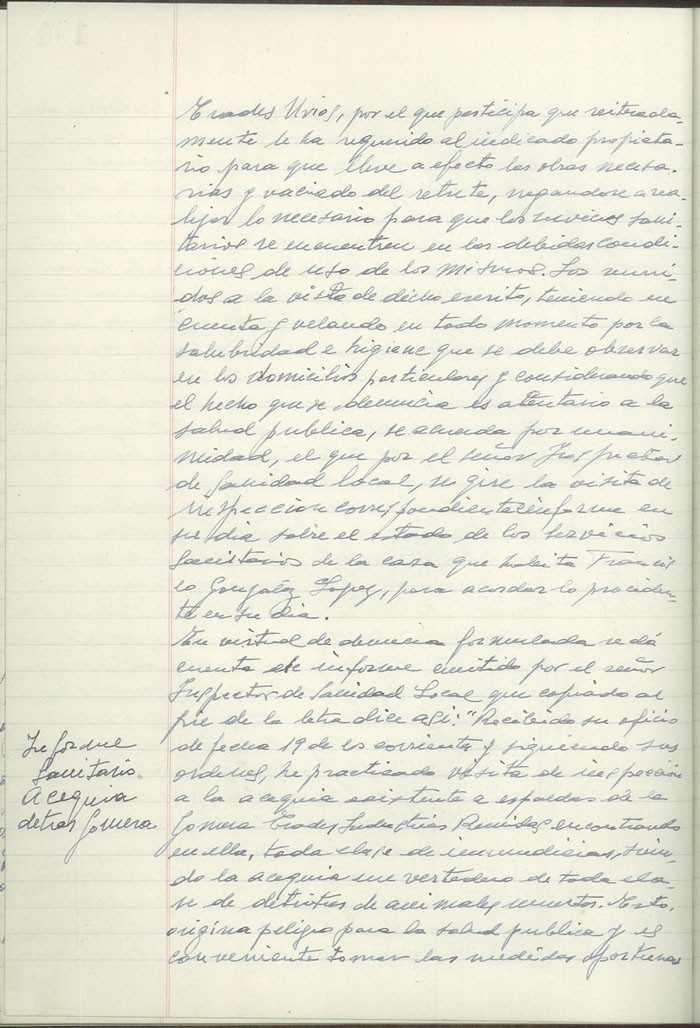 Erades Urios, por el que participa que reiterada-
mente le ha requerido al indicado propieta-
rio para que lleve a efecto las obras necesa-
rias y vaciado del retrete, negandose a rea-
lizar lo necesario para que los servicios sani-
tarios se encuentren en las debidas condi-
ciones de uso de los mismos. Los reuni-
dos a la vista de dicho escrito, teniendo en
cuenta y velando en todo momento por la
salubridad e higiene que se debe observar
en los domicilios particulares y considerando que
el hecho que se denuncia es atentario a la
salud publica, se acuerda por unani-
midad, el que por el señor Inspector
de Sanidad local, se gire la visita de
inspeccion correspondiente e informe en
su dia sobre el estado de los servicios
sanitarios de la casa que habita Francis-
co Gonzalez Lopez, para acordar lo proceden-
te en su dia.
En virtud de denuncia formulada se dá
cuenta de informe emitido por el señor
Inspector de Sanidad Local que copiado al
pie de la letra dice asi: "Recibido su oficio
de fecha 19 de los corrientes y siguiendo sus
ordenes, he practicado visita de inspección
a la acequia existente a espaldas de la
Gomera Erades Industrias Reunidas encontrando
en ella, toda clase de inmundicias, sien-
do la acequia un vertedero de toda cla-
se de detritus de animales muertos. Esto
origina peligro para la salud publica y es
conveniente tomar las medidas oportunas
Informe
Sanitario
Acequia
detras Gomera